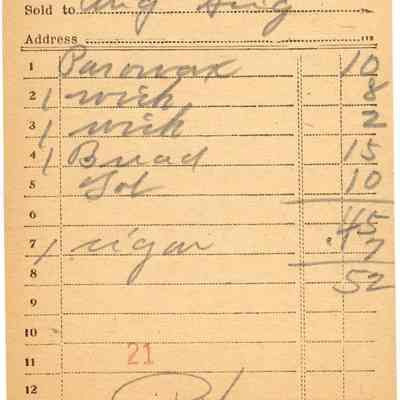 Sold to
Address
1 Parowax 10
2 1 wick 8
3 1 wick 2
4 1 Bread 15
5 10
6 45
7 1 cigar .7
8 52
9
10
11 21
12